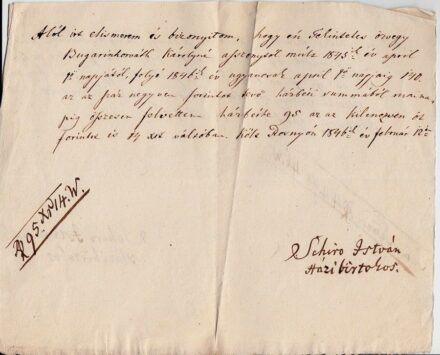 Alól irt elismerem és bizonyitom, hogy én Tekintetes özvegy
Bugarinhorváth Károlyné aszszonytól múlt 1845ik év april
1ső napjától, folyó 1846ik év ugyanazok april 1ső napjáig 140.
az az száz negyven forintot tevő házbéri summából mai na-
pig öszvesen felvettem házbérbe 95 az az kilenczven öt
forintot is 14 xrt váltóban. Költ Rosnyón 1846ik év február 12én
Schiro István
Házi birtokos.
R 95. Xr 14. W.